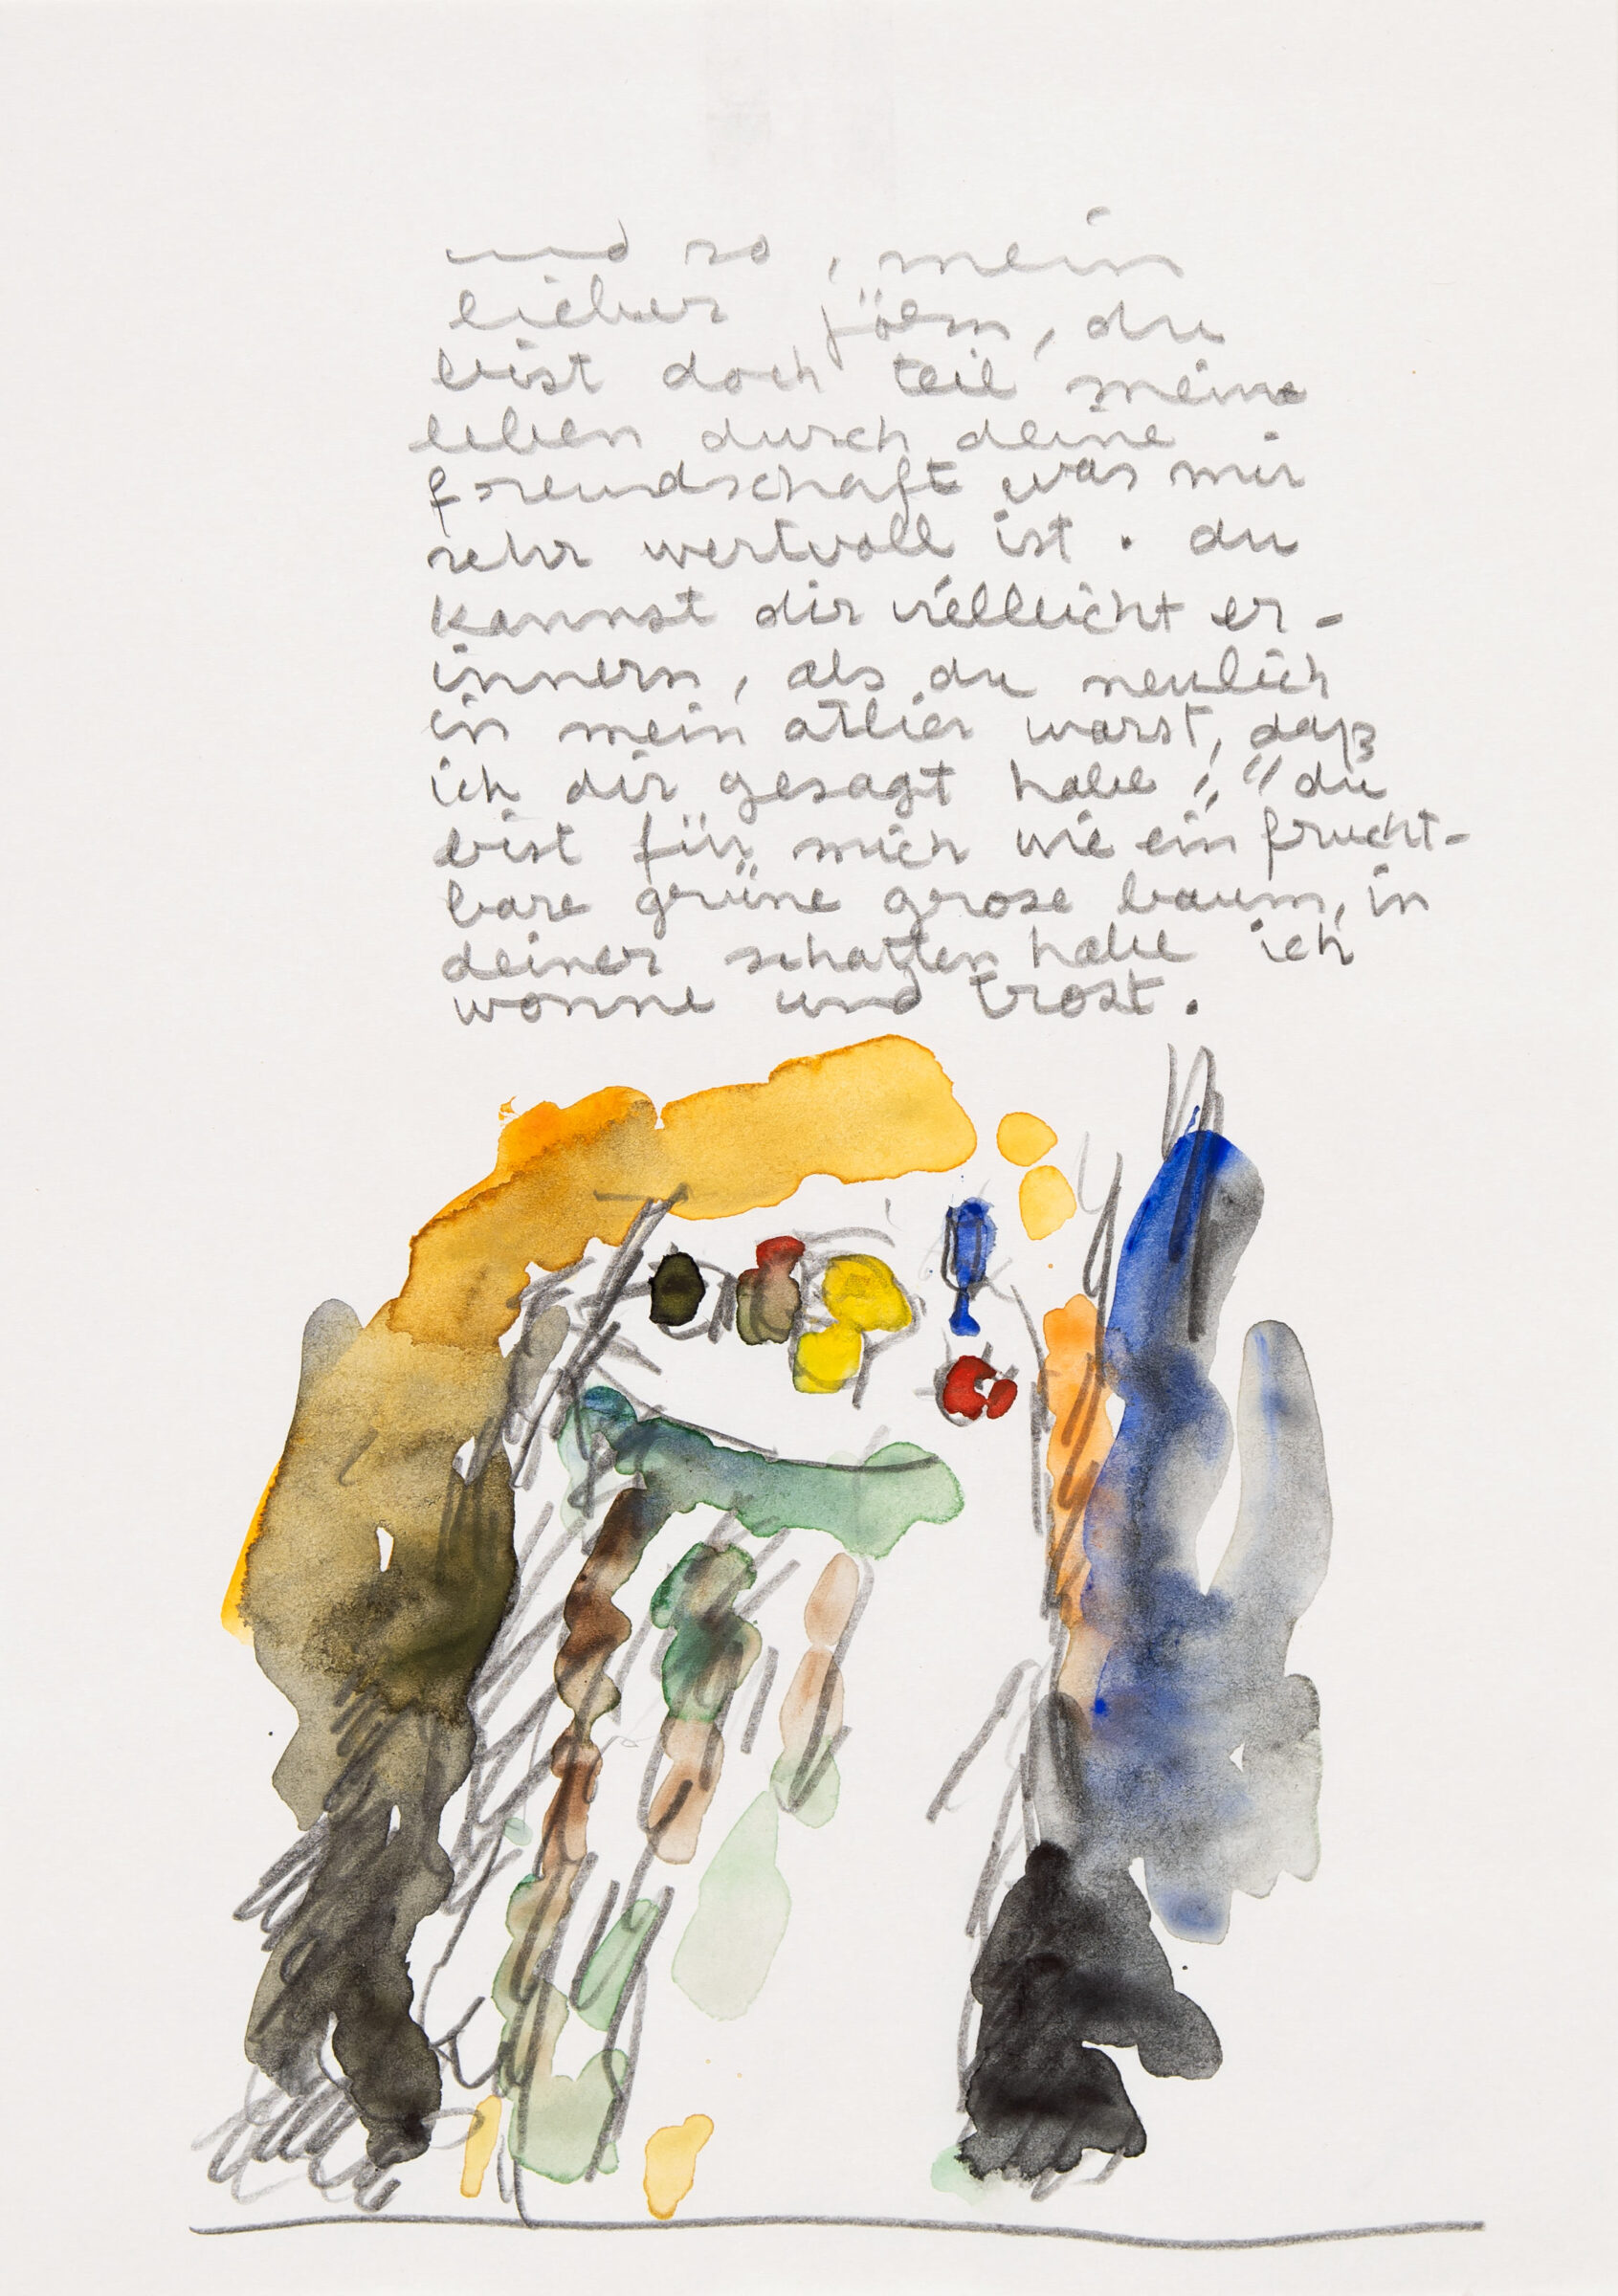 und so, mein
lieber jörn, du
bist doch teil meine
leben durch deine
freundschaft was mir
sehr wertvoll ist. du
kannst dir vielleicht er-
innern, als du neulich
in mein atlier warst, daß
ich dir gesagt habe ; "du
bist für mich wie ein frucht-
bare grüne grose baum, in
deiner schatten habe ich
wonne und trost.